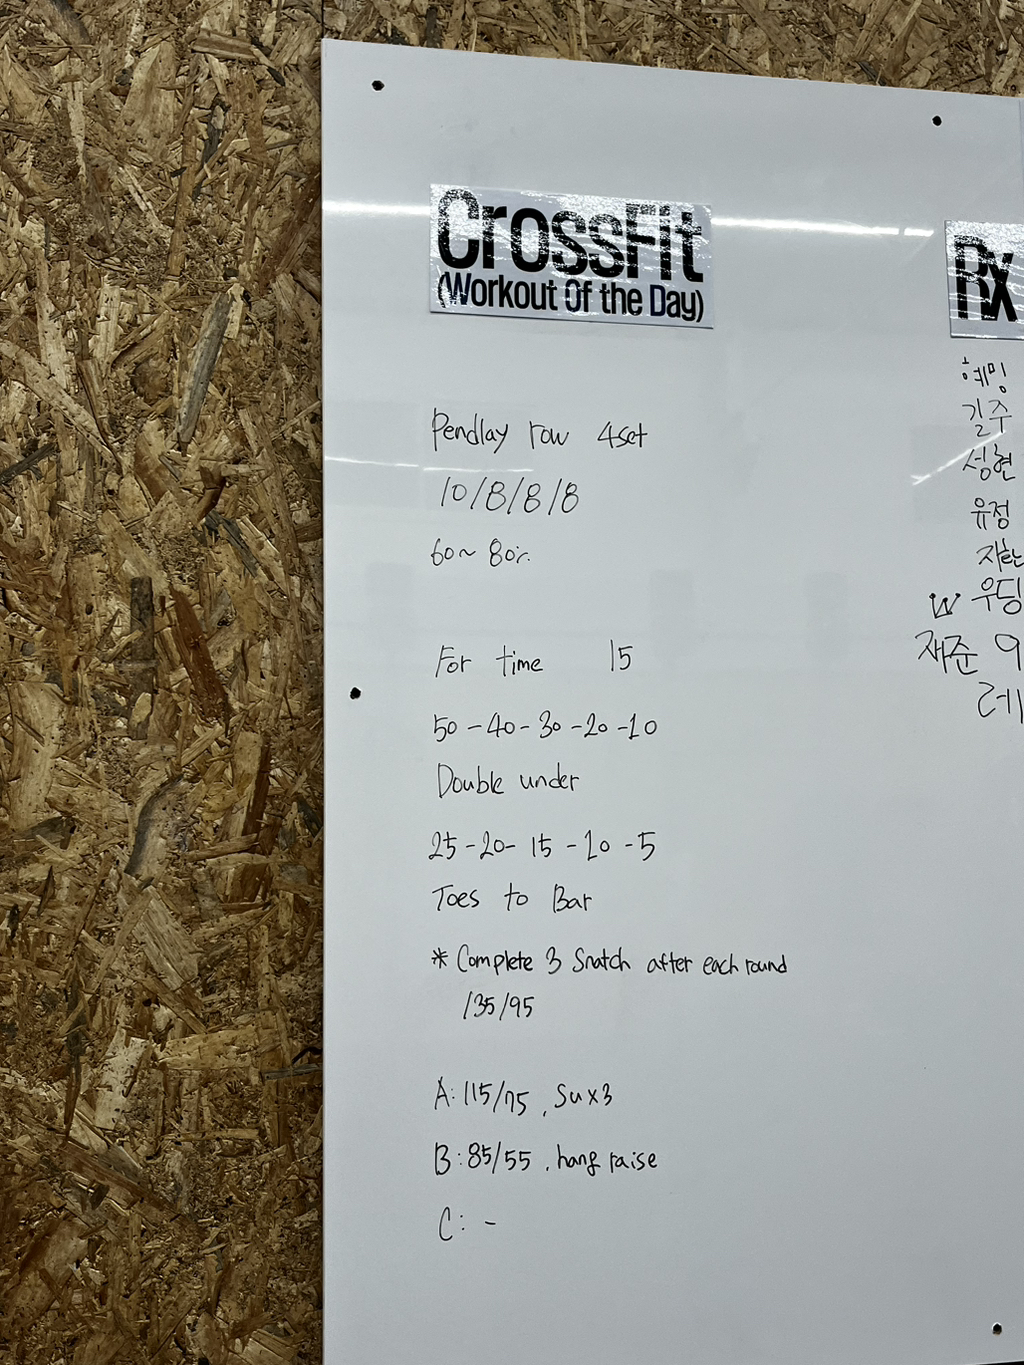 CrossFit
(Workout Of the Day)
Pendlay row 4set
10/8/8/8
60~80%
For time 15
50-40-30-20-10
Double under
25-20-15-10-5
Toes to Bar
* Complete 3 Snatch after each round
135/95
A: 115/75, Su x3
B: 85/55, hang raise
C: -
Rx
혜밍
길주
성현
유정
지한
우딩
재준
레